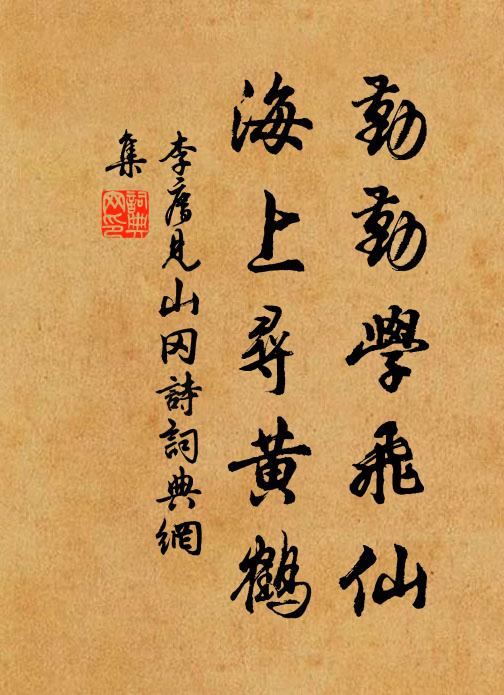 勤勤學飛仙
海上尋黃鶴
李膺見山冈詩詞典網
集
詞典网印